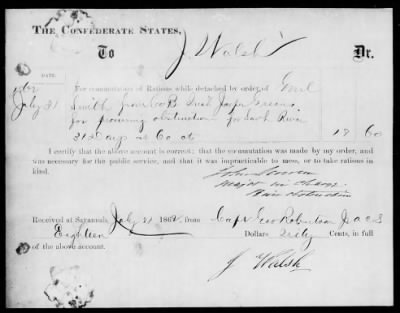 THE CONFEDERATE STATES,
To J Walsh Dr.
DATE.
1862
July 31
For commutation of Rations while detached by order of Genl
Smith from Co B
for procuring obstructions for Savh River
31 days at 60 cts 18 60
I certify that the above account is correct; that the commutation was made by my order, and
was necessary for the public service, and that it was impracticable to mess, or to take rations in
kind.
John
Major in charge
River obstruction
Received at Savannah, July 31 1862, from Capt Geo Robertson Jr A C S
Eighteen Dollars Sixty Cents, in full
of the above account.
J Walsh